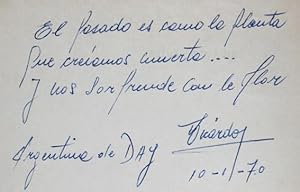 El Pasado es como la planta
Que creiamos muerta ....
Y nos Sorprende con la Flor
Argentina de DAY
10-1-70